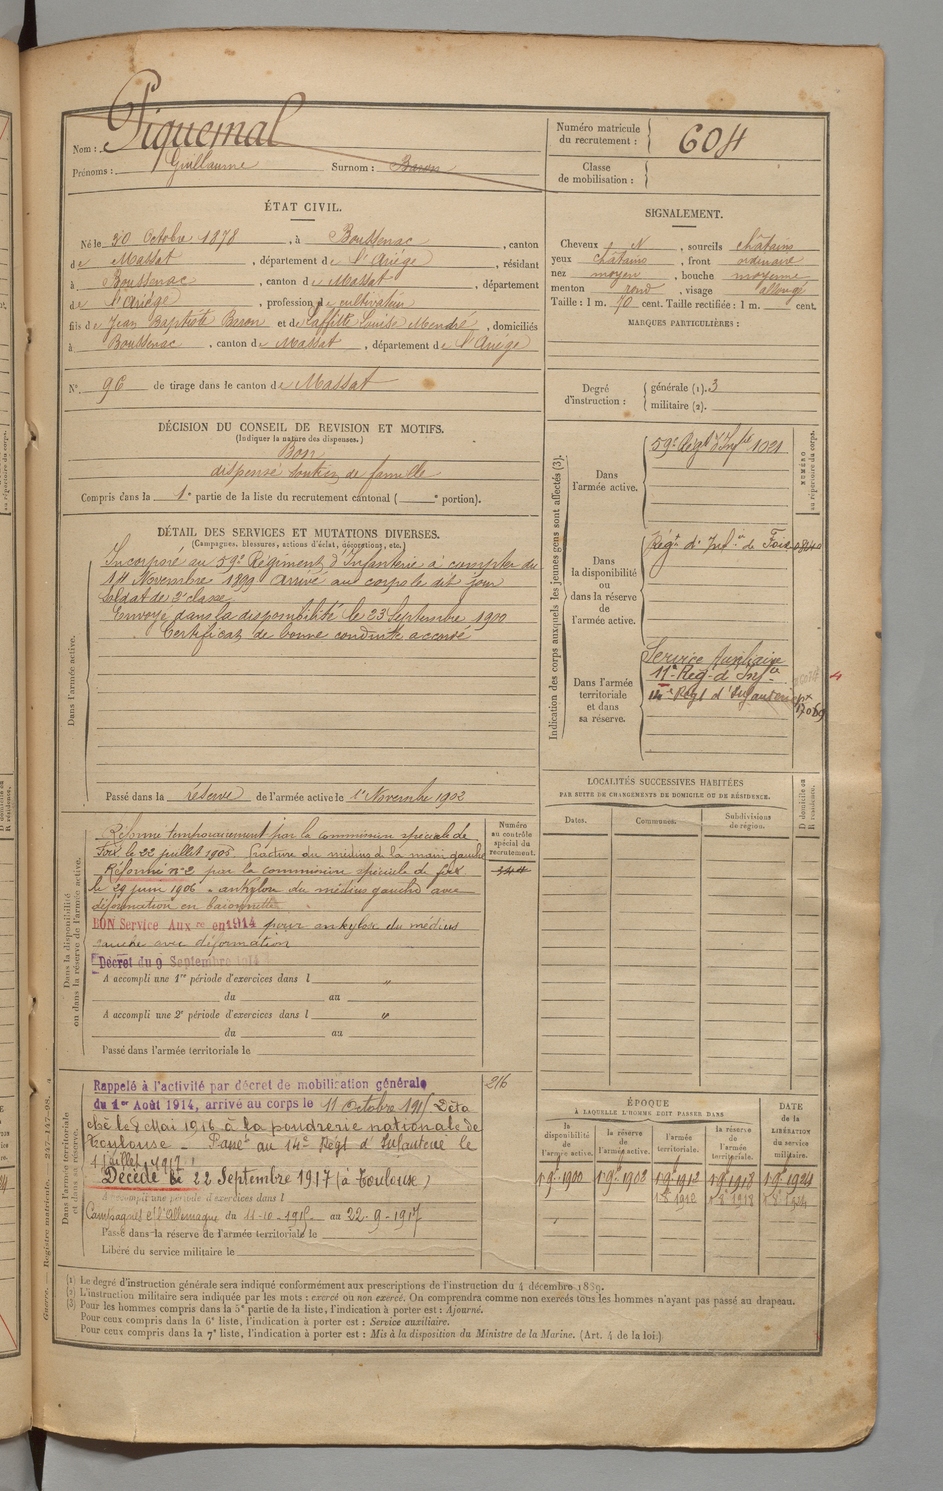 Nom : Piquemal
Prénoms : Guillaume Surnom : Baron
Numéro matricule du recrutement : 604
Classe de mobilisation :
ÉTAT CIVIL.
Né le 30 Octobre 1878, à Boussenac, canton
de Massat, département de l'Ariège, résidant
à Boussenac, canton de Massat, département
de l'Ariège, profession de cultivateur
fils de Jean Baptiste Baron et de Laffitte Louise Mendré, domiciliés
à Boussenac, canton de Massat, département de l'Ariège
N° 96 de tirage dans le canton de Massat
SIGNALEMENT.
Cheveux N, sourcils châtains
yeux châtains, front ordinaire
nez moyen, bouche moyenne
menton rond, visage allongé
Taille : 1 m. 70 cent. Taille rectifiée : 1 m. cent.
MARQUES PARTICULIÈRES :
Degré d'instruction : générale (1). 3
militaire (2).
DÉCISION DU CONSEIL DE REVISION ET MOTIFS.
(Indiquer la nature des dispenses.)
Bon
dispensé soutien de famille
Compris dans la 1e partie de la liste du recrutement cantonal ( e portion).
DÉTAIL DES SERVICES ET MUTATIONS DIVERSES.
(Campagnes, blessures, actions d'éclat, décorations, etc.)
Dans l'armée active.
Incorporé au 59e Régiment d'Infanterie à compter du
14 Novembre 1899 arrivé au corps le dit jour
Soldat de 2e classe
Envoyé dans la disponibilité le 23 Septembre 1900
Certificat de bonne conduite accordé
Passé dans la réserve de l'armée active le 1er Novembre 1902
Indication des corps auxquels les jeunes gens sont affectés (3).
NUMÉRO au répertoire du corps.
Dans l'armée active.
59e Régt d'Infie 1021
Dans la disponibilité ou dans la réserve de l'armée active.
Régt d'Infie de Foix
Dans l'armée territoriale et dans sa réserve.
Service Auxiliaire
14e Rég d'Infie
Régt d'Infanterie
LOCALITÉS SUCCESSIVES HABITÉES
PAR SUITE DE CHANGEMENTS DE DOMICILE OU DE RÉSIDENCE.
Dates. Communes. Subdivisions de région. D domicile ou R résidence.
Dans la disponibilité ou dans la réserve de l'armée active.
Numéro au contrôle spécial du recrutement.
344
Réformé temporairement par la commission spéciale de
Foix le 22 juillet 1905 fracture du médius de la main gauche
Réformé n° 2 par la commission spéciale de Foix
le 29 juin 1906 ankylose du médius gauche avec
déformation en baionnette
BON Service Auxre en 1914 pour ankylose du médius
gauche avec déformation
Décret du 9 Septembre 1914
A accompli une 1re période d'exercices dans l "
du au
A accompli une 2e période d'exercices dans l "
du au
Passé dans l'armée territoriale le
Dans l'armée territoriale et dans sa réserve.
216
Rappelé à l'activité par décret de mobilisation générale
du 1er Août 1914, arrivé au corps le 11 Octobre 1915 Déta
ché le 8 Mai 1916 à la poudrerie nationale de
Toulouse - Passé au 14e Régt d'Infanterie le
1 juillet 1917
Décédé le 22 Septembre 1917 (à Toulouse)
A accompli une période d'exercices dans l
Campagnes ct l'Allemagne du 11-10-1915 au 22-9-1917
Passé dans la réserve de l'armée territoriale le
Libéré du service militaire le
ÉPOQUE
À LAQUELLE L'HOMME DOIT PASSER DANS
la disponibilité de l'armée active. la réserve de l'armée active. l'armée territoriale. la réserve de l'armée territoriale. DATE de la LIBÉRATION du service militaire.
1.9.1900 1.9.1902 1.9.1912 1.9.1918 1.9.1924
1.8.1912 1.8.1918 1.8.1924
(1) Le degré d'instruction générale sera indiqué conformément aux prescriptions de l'instruction du 4 décembre 1889.
(2) L'instruction militaire sera indiquée par les mots : exercé ou non exercé. On comprendra comme non exercés tous les hommes n'ayant pas passé au drapeau.
(3) Pour les hommes compris dans la 5e partie de la liste, l'indication à porter est : Ajourné.
Pour ceux compris dans la 6e liste, l'indication à porter est : Service auxiliaire.
Pour ceux compris dans la 7e liste, l'indication à porter est : Mis à la disposition du Ministre de la Marine. (Art. 4 de la loi.)
Guerre. — Registre matricule. 247-147-98.